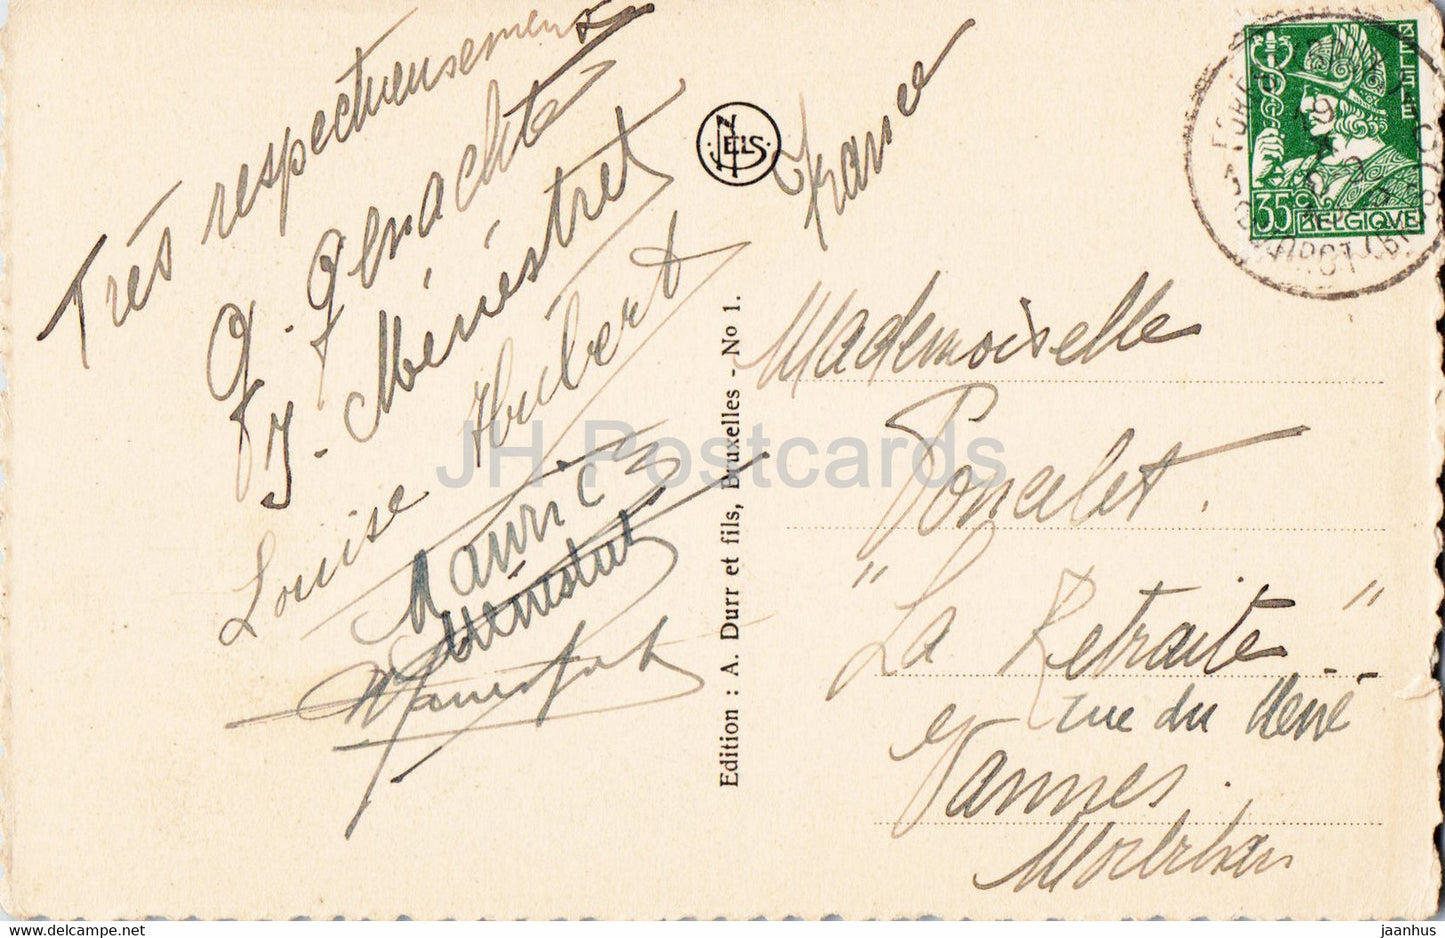 Très respectueusement
J. Ménestret
Louise Hubert
Maurice
Ménestret
NELS
Edition : A. Durr et fils, Bruxelles - No 1.
France
BELGIE
35c
BELGIQUE
Mademoiselle
Poncelet.
"La Retraite"
rue du Mené
Vannes.
Morbihan
JH Postcards
www.hippostcard.com
jaanhus